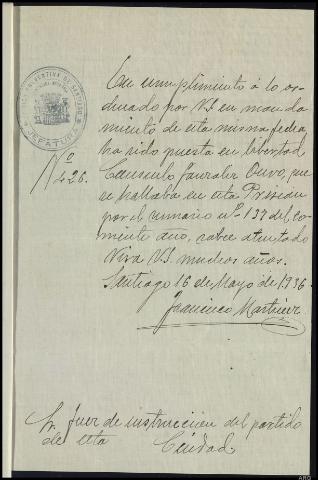 PREVENTIVA DE SANTIAGO
JEFATURA
Nº
426.
En cumplimiento á lo or-
denado por V.S en manda-
miento de esta misma fecha
ha sido puesta en libertad
Consuelo que
se hallaba en esta Prision
por el sumario nº 137 del co-
rriente año, sobre atentado
Viva V.S. muchos años.
Santiago 16 de Mayo de 1936.
Francisco Martinez
Sr. Juez de instrucción del partido
de esta Ciudad